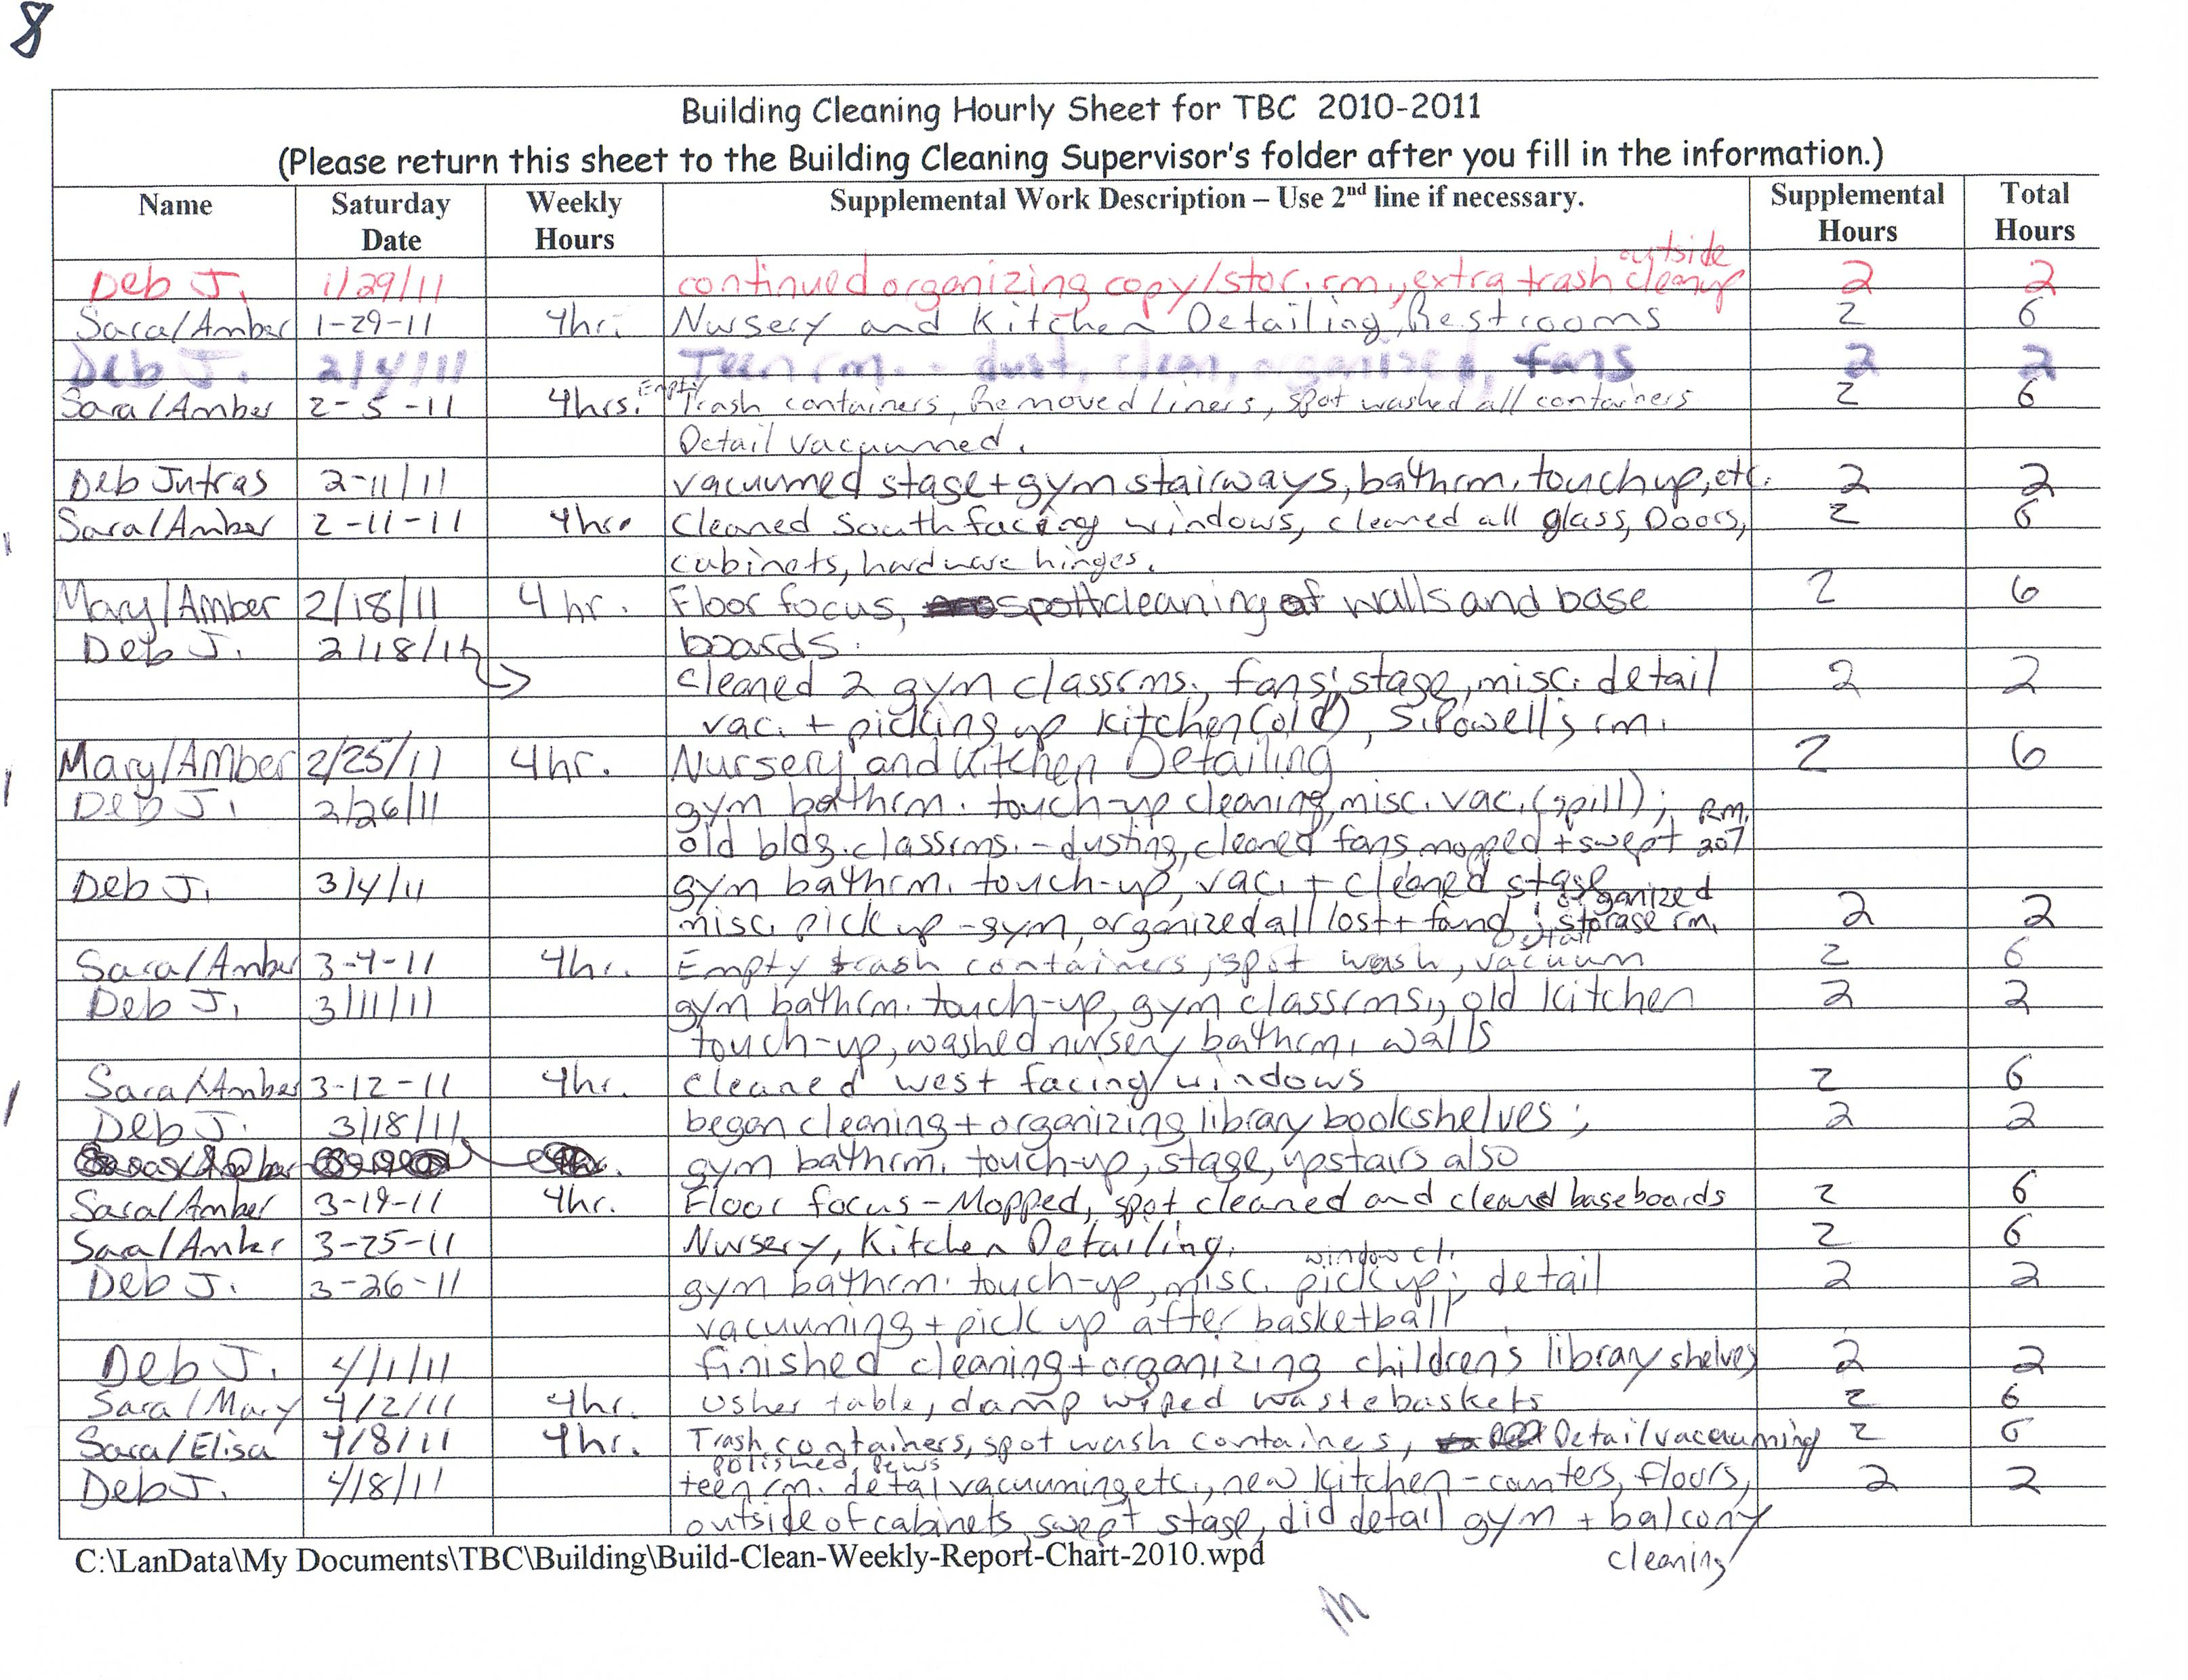 8
Building Cleaning Hourly Sheet for TBC 2010-2011
(Please return this sheet to the Building Cleaning Supervisor's folder after you fill in the information.)
Name Saturday Date Weekly Hours Supplemental Work Description – Use 2nd line if necessary. Supplemental Hours Total Hours
outside
Deb J. 1/29/11 continued organizing copy/stor. rm., extra trash cleanup 2 2
Sara/Amber 1-29-11 4hr. Nursery and Kitchen Detailing, Restrooms 2 6
Deb J. 2/4/11 Teen rm. - dust, clean, organized, fans 2 2
Sara/Amber 2-5-11 4hrs. Empty Trash containers, Removed liners, spot washed all containers 2 6
Detail vacuumed.
Deb Jutras 2-11/11 vacuumed stage + gym stairways, bathrm. touchup, etc. 2 2
Sara/Amber 2-11-11 4hr. Cleaned South facing windows, cleaned all glass, Doors, 2 6
cabinets, hardware hinges.
Mary/Amber 2/18/11 4hr. Floor focus, spott cleaning of walls and base 2 6
Deb J. 2/18/11 boards.
cleaned 2 gym classrms., fans; stage, misc. detail 2 2
vac. + picking up kitchen (old), S. Powell's rm.
Mary/Amber 2/25/11 4hr. Nursery and Kitchen Detailing 2 6
Deb J. 2/26/11 gym bathrm. touch-up cleaning, misc. vac. (spill); RM.
old bldg. classrms. - dusting, cleaned fans mopped + swept 207
Deb J. 3/4/11 gym bathrm. touch-up, vac. + cleaned stage
organized
misc. pick up - gym, organized all lost + found; storage rm. 2 2
Detail
Sara/Amber 3-4-11 4hr. Empty trash containers, spot wash, vacuum 2 6
Deb J. 3/11/11 gym bathrm. touch-up, gym classrms., old kitchen 2 2
touch-up, washed nursery bathrm. walls
Sara/Amber 3-12-11 4hr. cleaned west facing windows 2 6
Deb J. 3/18/11 began cleaning + organizing library bookshelves; 2 2
gym bathrm. touch-up, stage, upstairs also
Sara/Amber 3-19-11 4hr. Floor focus - Mopped, spot cleaned and cleaned baseboards 2 6
Sara/Amber 3-25-11 Nursery, Kitchen Detailing. 2 6
window cl.
Deb J. 3-26-11 gym bathrm. touch-up, misc. pick up; detail 2 2
vacuuming + pick up after basketball
Deb J. 4/1/11 finished cleaning + organizing children's library shelves 2 2
Sara/Mary 4/2/11 4hr. usher table, damp wiped wastebaskets 2 6
Sara/Elisa 4/8/11 4hr. Trash containers, spot wash containes, Detail vacuuming 2 6
polished pews
Deb J. 4/8/11 teen rm. detail vacuuming etc., new kitchen - counters, floors, 2 2
outside of cabinets, swept stage, did detail gym + balcony
cleaning
C:\LanData\My Documents\TBC\Building\Build-Clean-Weekly-Report-Chart-2010.wpd